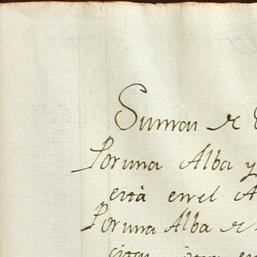 Suman de
Por una Alba y
está en el A
Por una Alba de